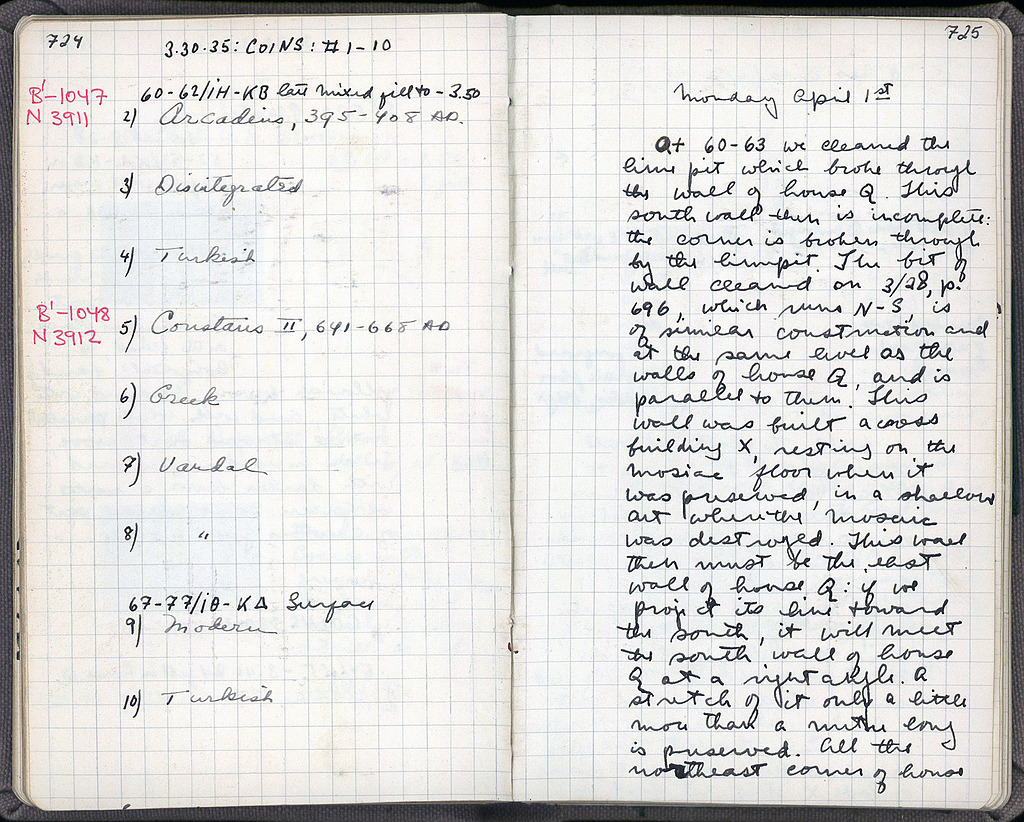 724
3.30.35: COINS: # 1-10
B'-1047
N 3911
60-62/ΙΗ-ΚΒ late mixed fill to - 3.50
2) Arcadius, 395-408 AD.
3) Disintegrated
4) Turkish
B'-1048
N 3912
5) Constans II, 641-668 AD
6) Greek
7) Vandal
8) "
67-77/ΙΘ-ΚΔ Surface
9) Modern
10) Turkish
725
Monday April 1st
At 60-63 we cleaned the
lime pit which broke through
the wall of house Q. This
south wall then is incomplete:
the corner is broken through
by the limepit. The bit of
wall cleaned on 3/28, p.
696, which runs N-S, is
of similar construction and
at the same level as the
walls of house Q, and is
parallel to them. This
wall was built across
building X, resting on the
mosiac floor when it
was preserved, in a shallow
cut where the mosaic
was destroyed. This wall
then must be the east
wall of house Q: if we
project its line toward
the south, it will meet
the south wall of house
Q at a right angle. A
stretch of it only a little
more than a metre long
is preserved. All the
northeast corner of house